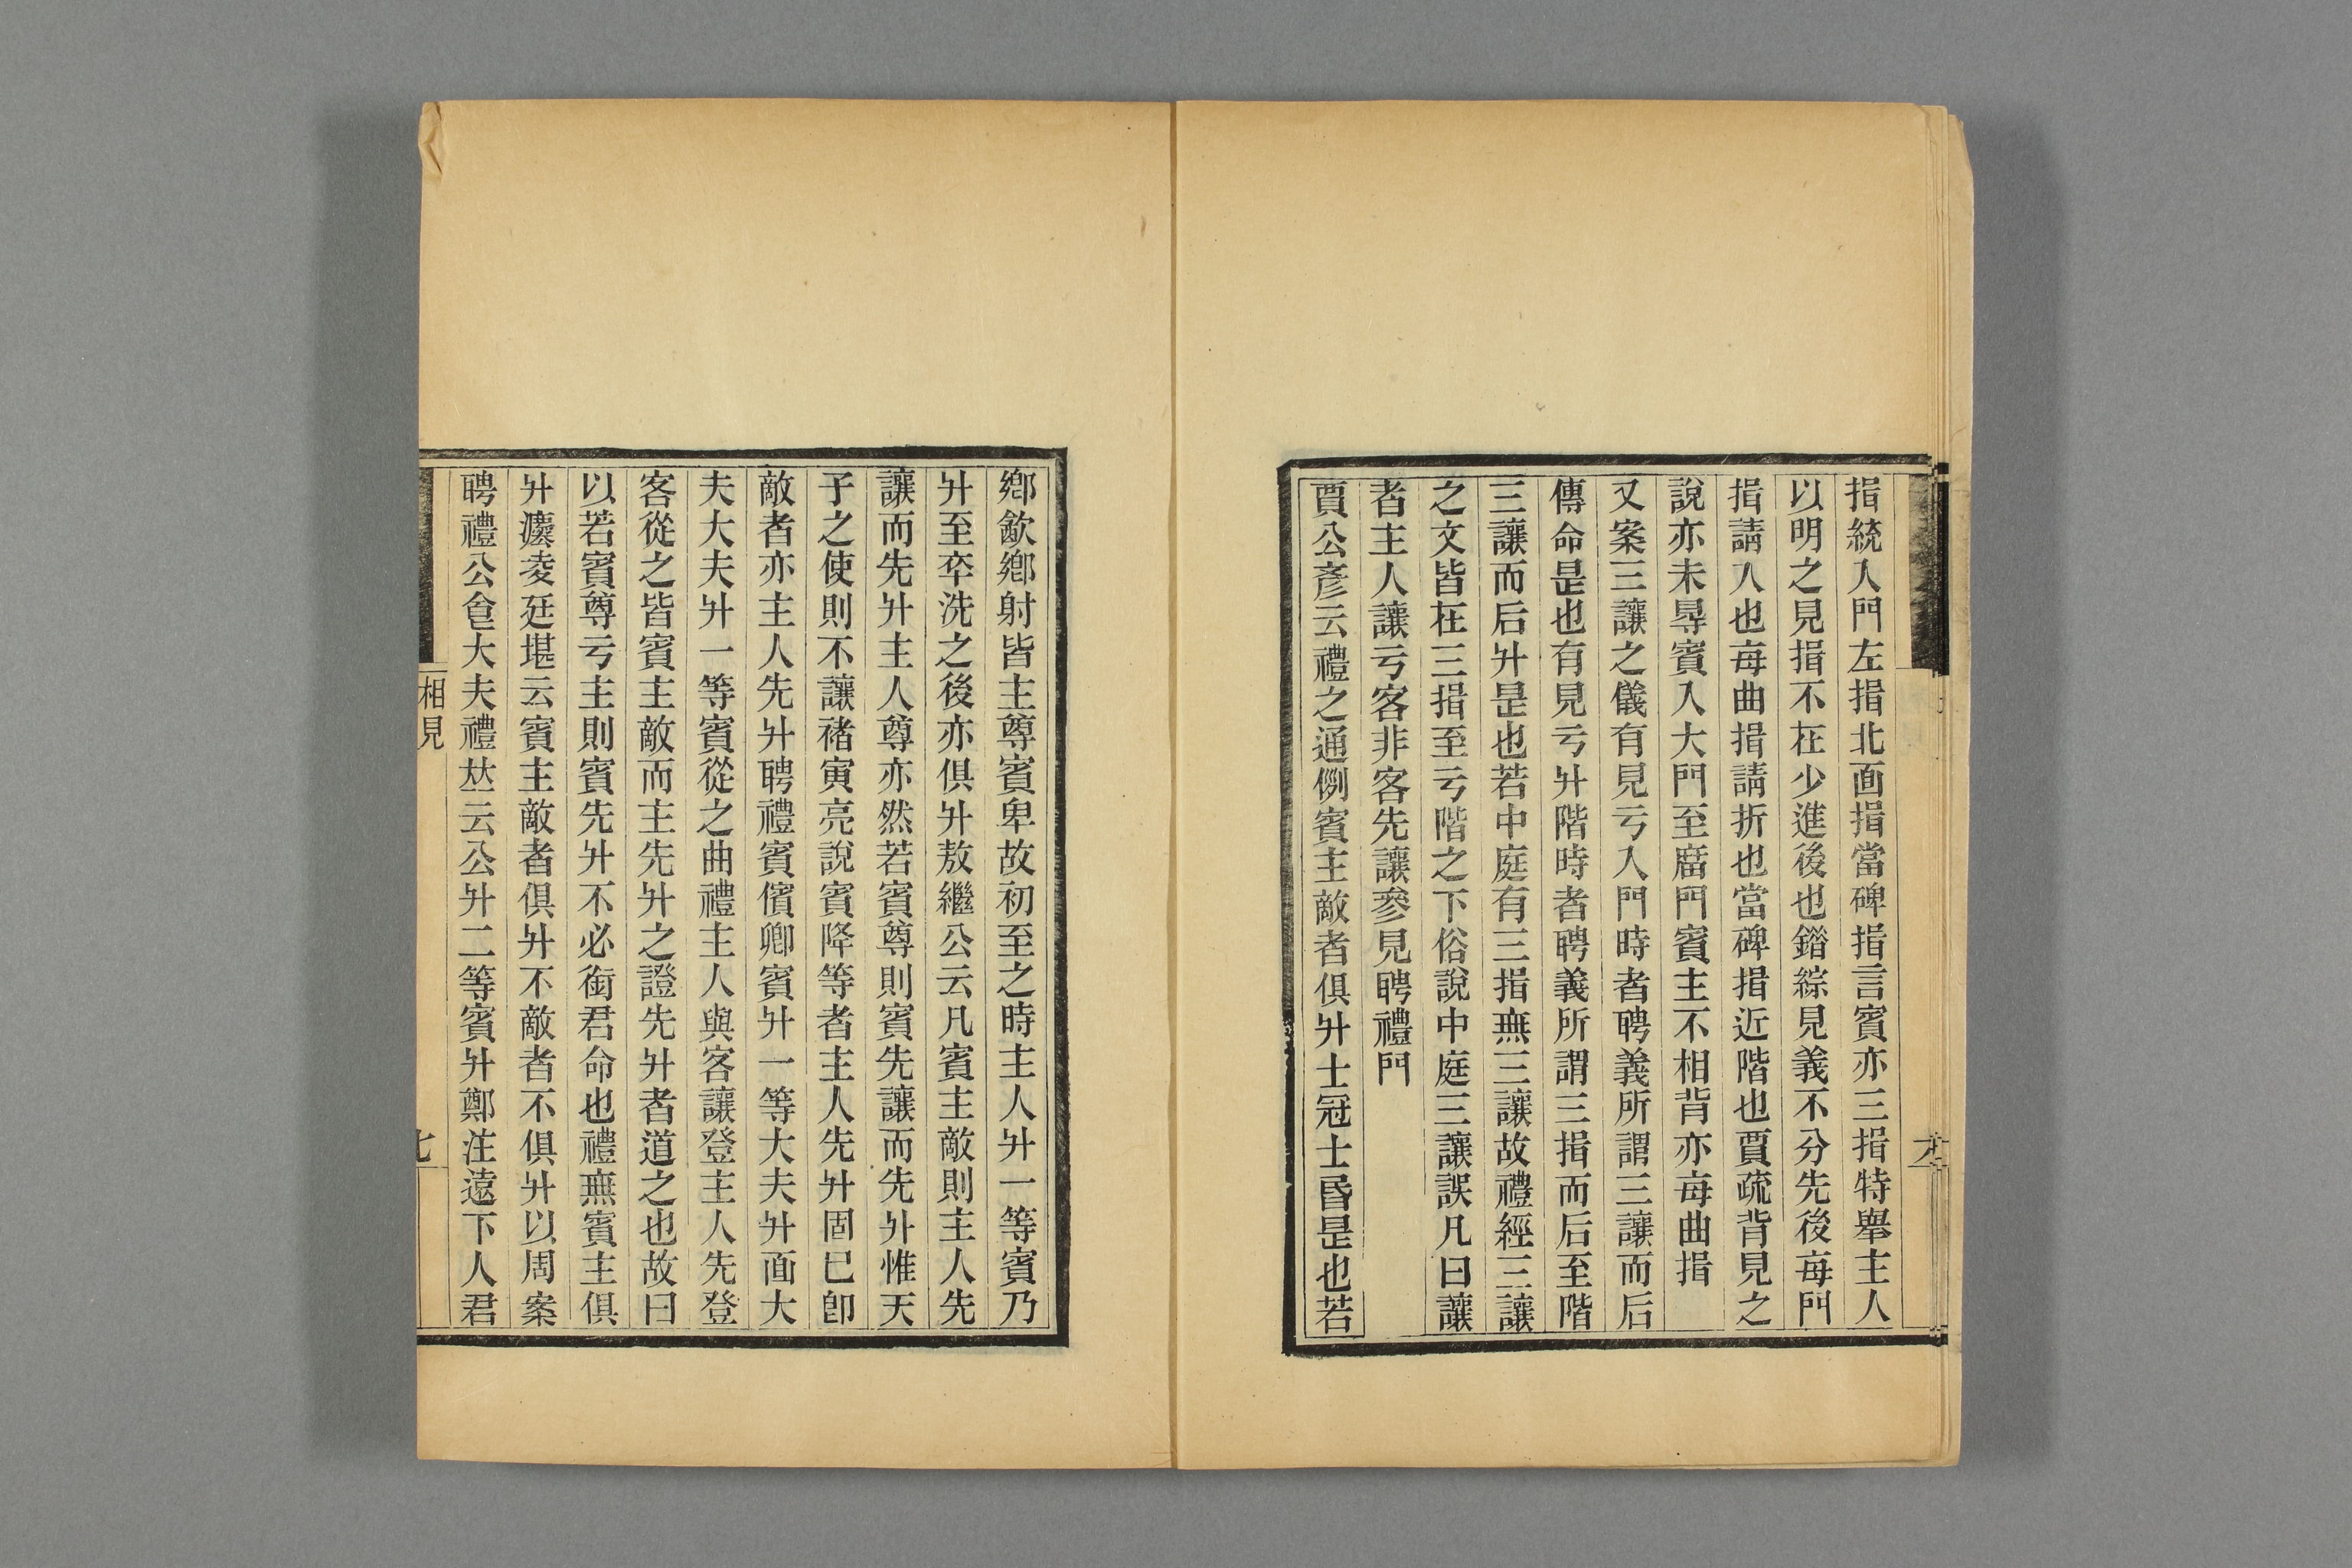 揖統入門左揖北面揖當碑揖言賓亦三揖特舉主人
以明之見揖不在少進後也錯綜見義不分先後每門
揖請入也每曲揖請折也當碑揖近階也賈疏背見之
說亦未㝵賓入大門至庿門賓主不相背亦每曲揖
又案三讓之儀有見亏入門時者聘義所謂三讓而后
傳命是也有見亏升階時者聘義所謂三揖而后至階
三讓而后升是也若中庭有三揖無三讓故禮經三讓
之文皆在三揖至亏階之下俗說中庭三讓誤凡曰讓
者主人讓亏客非客先讓參見聘禮門
賈公彥云禮之通例賓主敵者俱升士冠士昏是也若
鄉飲鄉射皆主尊賓卑故初至之時主人升一等賓乃
升至卒洗之後亦俱升敖繼公云凡賓主敵則主人先
讓而先升主人尊亦然若賓尊則賓先讓而先升惟天
子之使則不讓褚寅亮說賓降等者主人先升固已卽
敵者亦主人先升聘禮賓儐卿賓升一等大夫升面大
夫大夫升一等賓從之曲禮主人與客讓登主人先登
客從之皆賓主敵而主先升之證先升者道之也故曰
以若賓尊亏主則賓先升不必銜君命也禮無賓主俱
升灋凌廷堪云賓主敵者俱升不敵者不俱升以周案
聘禮公食大夫禮竝云公升二等賓升鄭注遠下人君
相見
七